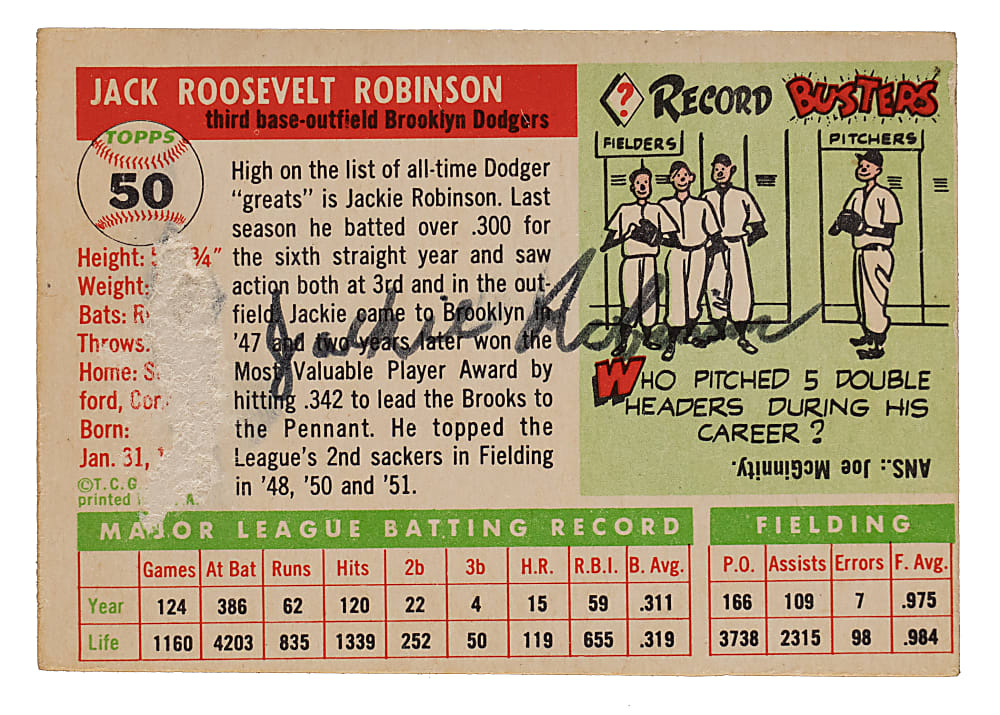 JACK ROOSEVELT ROBINSON
third base-outfield Brooklyn Dodgers
TOPPS
50
Height: ¾"
Weight:
Bats:
Throws.
Home:
ford,
Born:
Jan. 31,
©T.C.G.
printed A.
High on the list of all-time Dodger
"greats" is Jackie Robinson. Last
season he batted over .300 for
the sixth straight year and saw
action both at 3rd and in the out-
field. Jackie came to Brooklyn in
'47 and two years later won the
Most Valuable Player Award by
hitting .342 to lead the Brooks to
the Pennant. He topped the
League's 2nd sackers in Fielding
in '48, '50 and '51.
Jackie Robinson
? RECORD BUSTERS
FIELDERS
PITCHERS
WHO PITCHED 5 DOUBLE
HEADERS DURING HIS
CAREER?
ANS.: Joe McGinnity.
MAJOR LEAGUE BATTING RECORD
Games At Bat Runs Hits 2b 3b H.R. R.B.I. B. Avg.
Year 124 386 62 120 22 4 15 59 .311
Life 1160 4203 835 1339 252 50 119 655 .319
FIELDING
P.O. Assists Errors F. Avg.
166 109 7 .975
3738 2315 98 .984